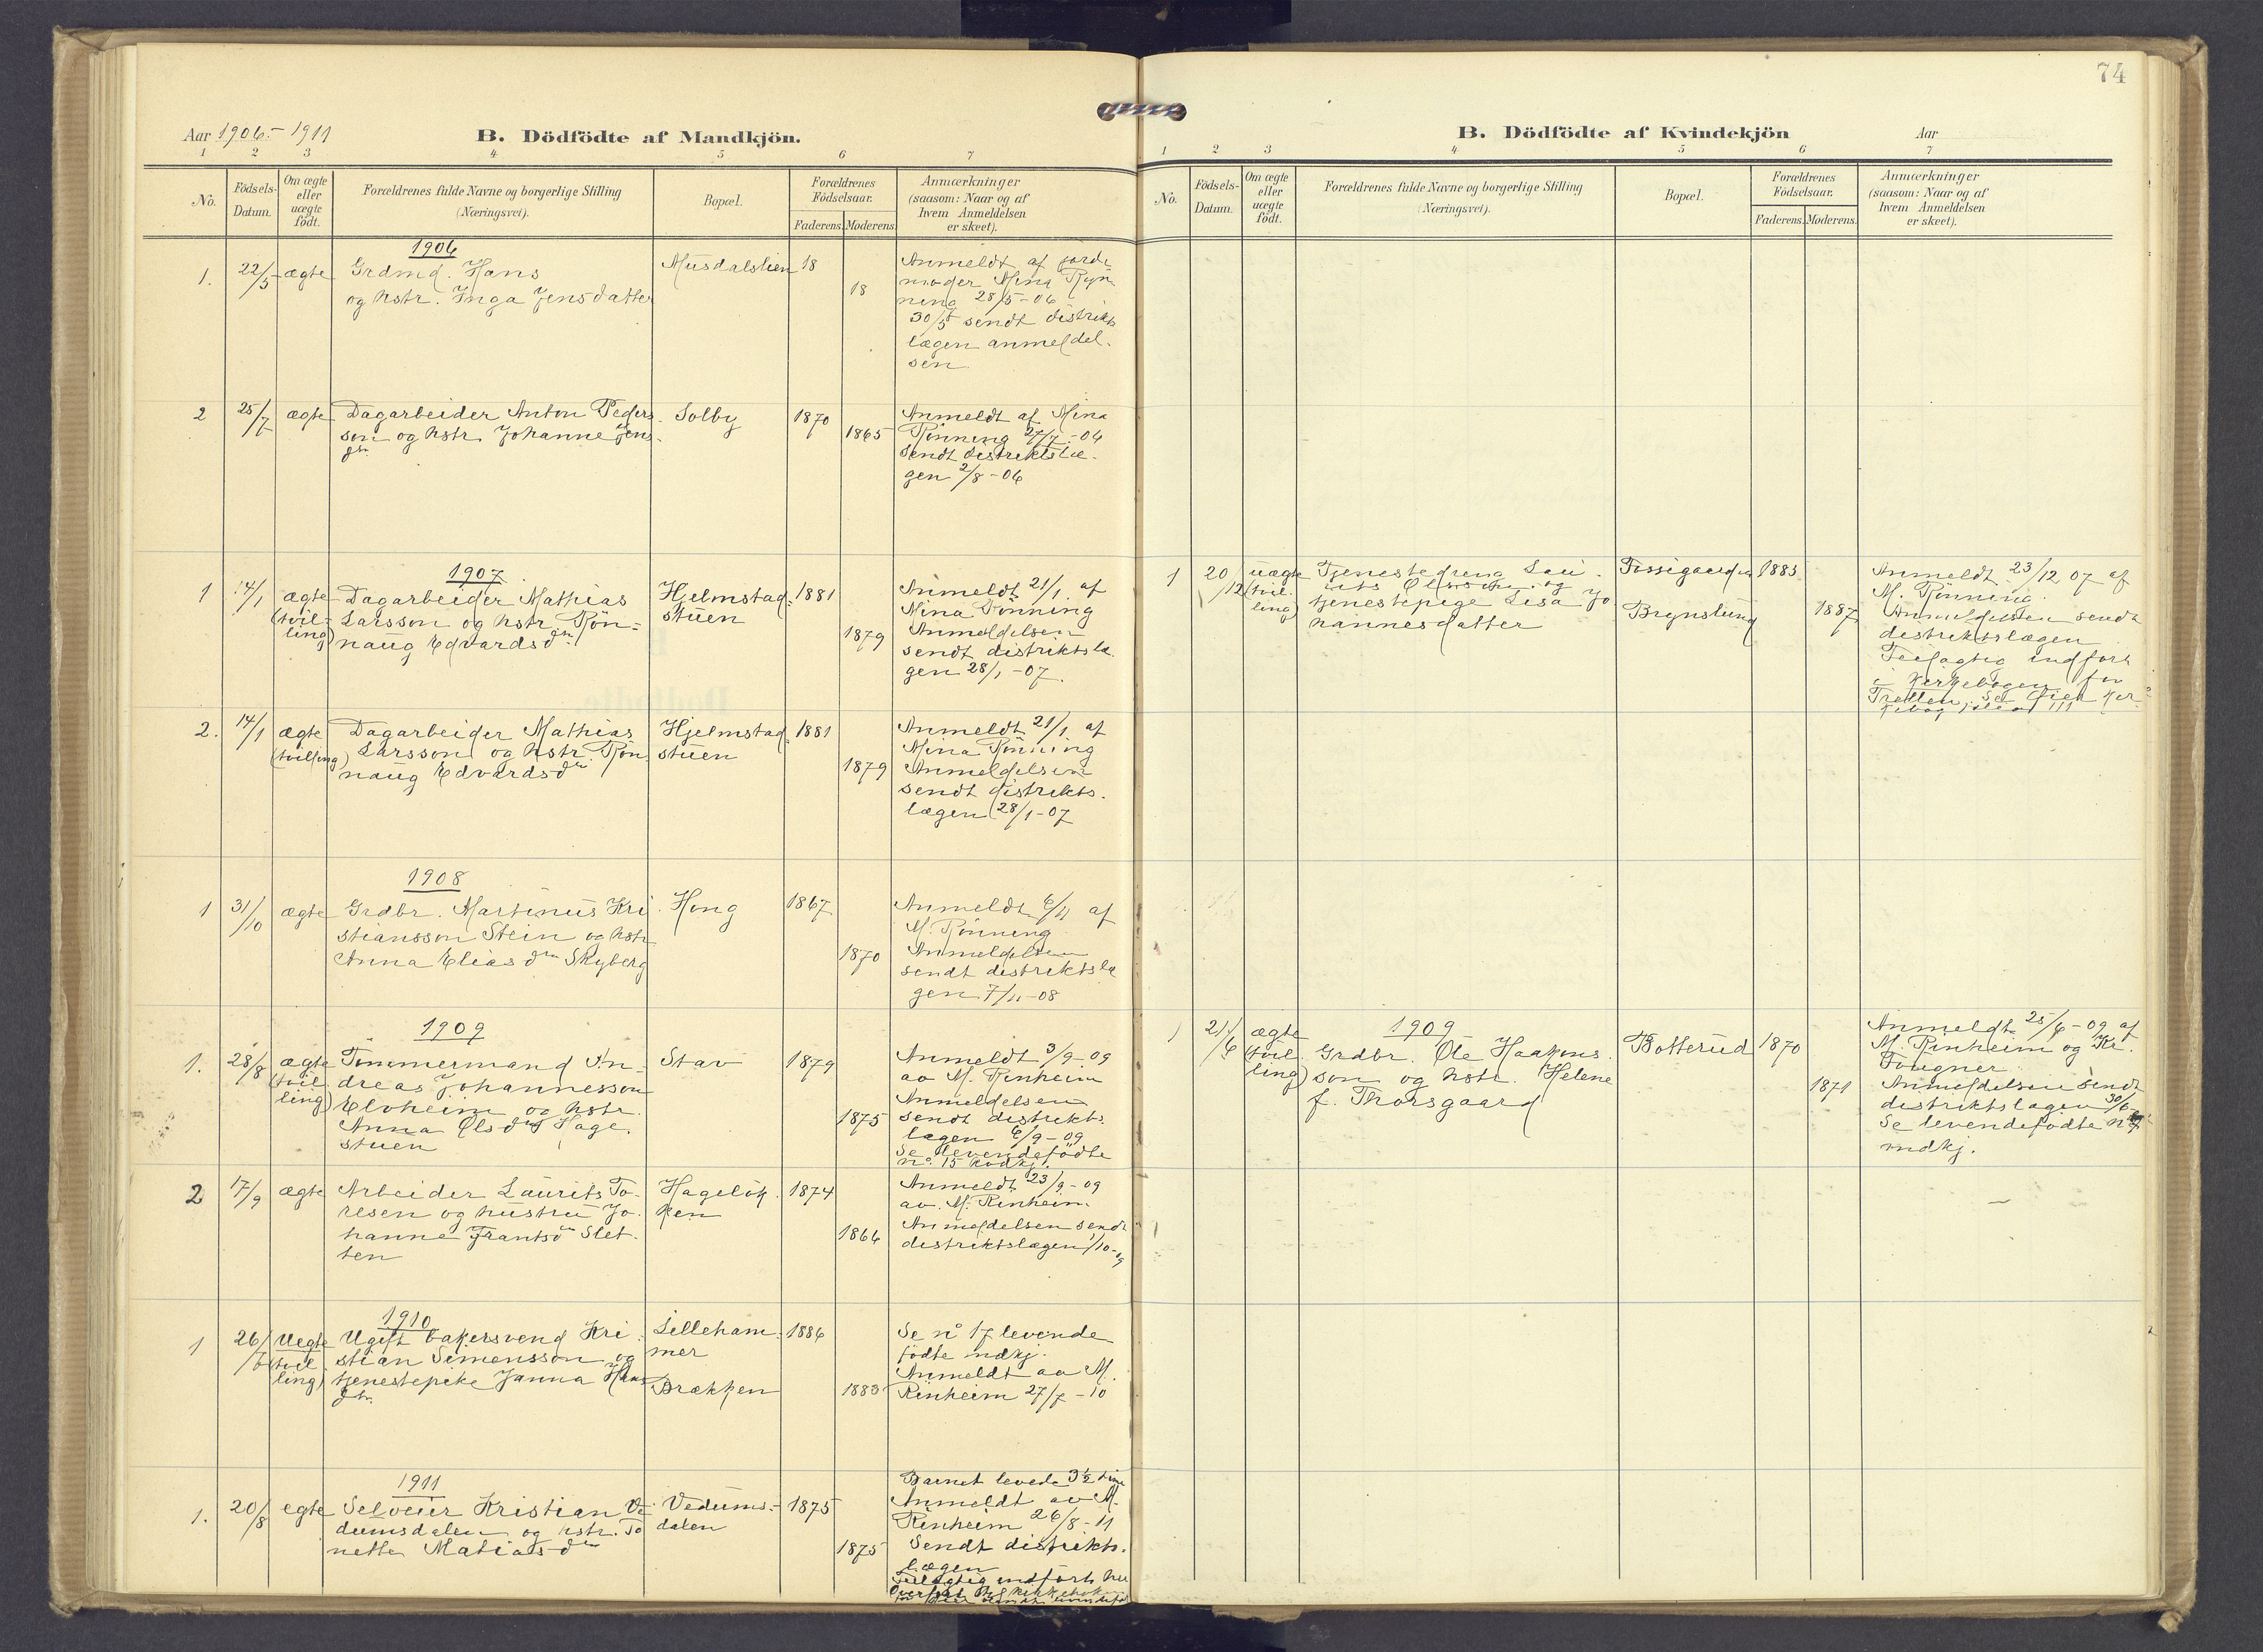 74
Aar 1906 - 1911
B. Dödfödte af Mandkjön.
1 2 3 4 5 6 7
No.
Födsels-Datum.
Om ægte eller uægte födt.
Forældrenes fulde Navne og borgerlige Stilling (Næringsvei).
Bopæl.
Forældrenes Födselsaar.
Faderens. Moderens.
Anmærkninger (saasom: Naar og af hvem Anmeldelsen er skeet).
1906
1. 22/5 ægte Grdmd. Hans
og hstr. Inga Jensdatter
Musdalslien 18
18
Anmeldt af jorde
moder Mina Røn
ning 28/5-06
30/5 sendt distrikts
lægen anmeldel.
sen
2 25/7 ægte Dagarbeider Anton Peders
son og hstr. Johanne Jens
dtr.
Solby 1870
1865
Anmeldt af Mina
Rønning 27/7-06
sendt distriktslæ-
gen 2/8-06
1907
1 14/1 ægte
(tvil-
ling)
Dagarbeider Mathias
Larsson og hstr. Røn=
naug Edvardsdtr
Hjelmstad=
stuen
1881
1879
Anmeldt 21/1 af
Mina Rønning
Anmeldelsen
sendt distriktslæ
gen 28/1-07.
2. 14/1 ægte
(tvilling)
Dagarbeider Mathias
Larsson og hstr. Røn
naug Edvardsdtr
Hjelmstad=
stuen
1881
1879
Anmeldt 21/1 af
Mina Rønning
Anmeldelsen
sendt distrikts.
lægen 28/1-07
1908
1 31/10 ægte Grdbr. Martinus Kri
stiansson Stein og hstr
Anna Eliasdtr Skyberg
Hong 1867
1870
Anmeldt 6/11 af
M. Rønning
Anmeldelsen
sendt distriktslæ
gen 7/11-08
1909
1. 28/8 ægte
(tvil
ling)
Tømmermand An-
dreas Johannesson
Elvheim og hstr.
Anna Olsdtr Hage.
stuen
Stav 1879
1875
Anmeldt 3/9-09
av M. Rinheim
Anmeldelsen
sendt distrikts.
lægen 6/9-09
Se levendefødte
no. 15 kvdkj.
2 17/9 ægte Arbeider Laurits To-
resen og hustru Jo.
hanne Frantsdtr Slet.
ten
Hageløk
ken
1874
1864
Anmeldt 23/9-09
av. M. Rinheim
Anmeldelsen sendt
distriktslægen 1/10-09
1910
1 26/6 Uegte
(tvil
ling)
Ugift bakersvend Kri
stian Simensson og
tjenestepike Janna Hans
dtr.
Lilleham-
mer
Brækken
1886
1883
Se no 17 levende
fødte mdkj.
Anmeldt av M.
Rinheim 27/7-10
1911
1. 20/8 egte Selveier Kristian Ve
dumsdalen og hstr. To
nette Matiasdtr
Vedums-
dalen
1875
1875
Barnet levede 3½ time
Anmeldt av M.
Rinheim 26/8-11
Sendt distrikts.
lægen
Feilagtig indført her
B. Dödfödte af Kvindekjön
Aar
1 2 3 4 5 6 7
No.
Födsels-Datum.
Om ægte eller uægte födt.
Forældrenes fulde Navne og borgerlige Stilling (Næringsvei).
Bopæl.
Forældrenes Födselsaar.
Faderens. Moderens.
Anmærkninger (saasom: Naar og af hvem Anmeldelsen er skeet).
1 20/12 uægte
(tvil.
ling)
Tjenestedreng Lau.
rits Olsson og
tjenestepige Lisa Jo
hannesdatter
Brynslund
1883
1887
Anmeldt 23/12 07 af
M. Rønning.
Anmeldelsen sendt
distriktslægen
Feilagtig indført
i kirkebogen for
1909
1 21/6 ægte
(tvil.
ling)
Grdbr. Ole Haakons.
son og hstr. Helene
f. Thorsgaard
Botterud 1870
1871
Anmeldt 25/6-09 af
M. Rinheim og Kr.
Fougner
Anmeldelsen sendt
distriktslægen 30/6
Se levendefødte
mdkj.